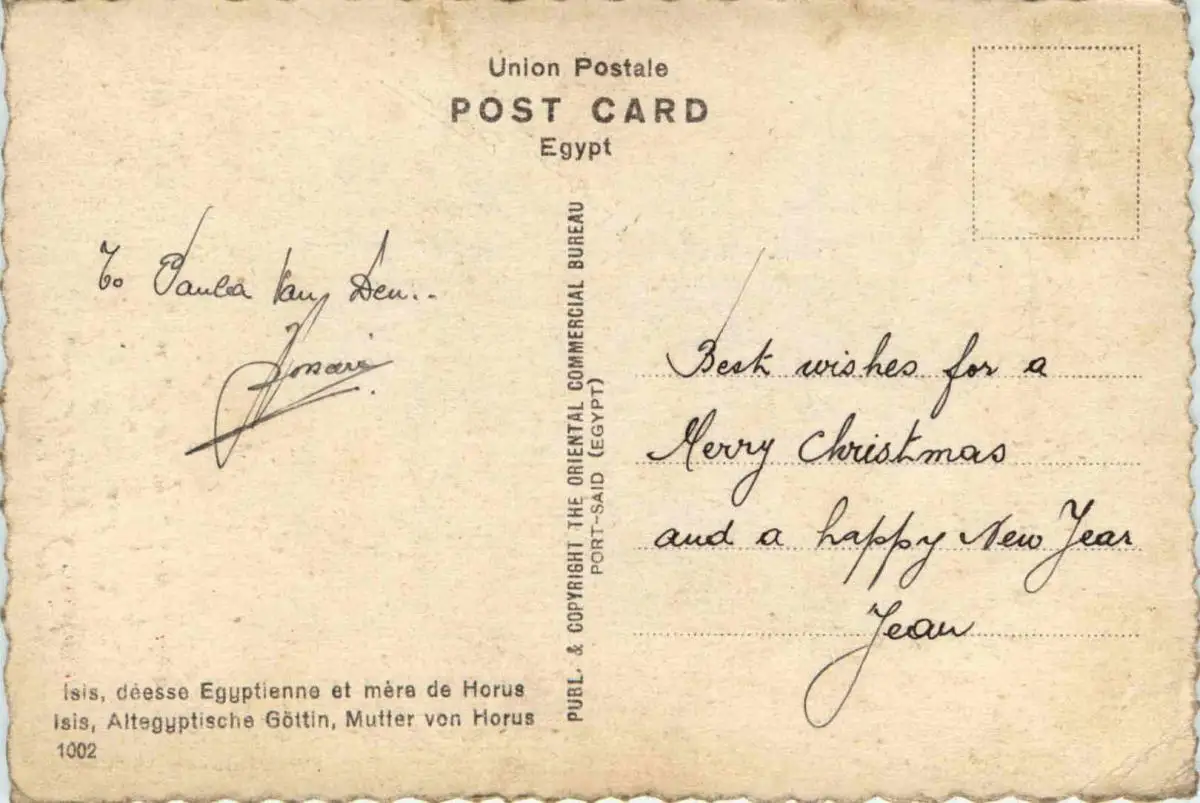 Union Postale
POST CARD
Egypt
To Paula Van Den..
PUBL. & COPYRIGHT THE ORIENTAL COMMERCIAL BUREAU
PORT-SAID (EGYPT)
Best wishes for a
Merry Christmas
and a happy New Year
Jean
Isis, déesse Egyptienne et mère de Horus
Isis, Altegyptische Göttin, Mutter von Horus
1002